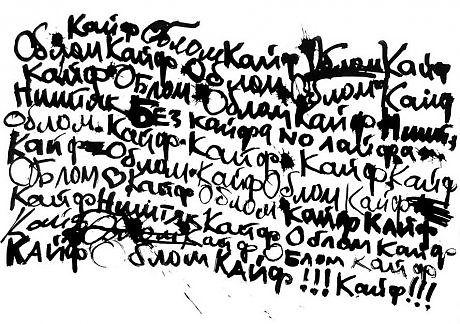 Кайф Облом
Облом Кайф Кайф Облом Кайф
Кайф Облом Облом Облом Кайф
Ништяк Без кайфа no лайфа Облом Кайф Ништяк
Облом Кайф
Кайф Облом Кайф Кайф Кайф
Облом Кайф Облом Облом Кайф
Кайф Ништяк Облом Кайф Кайф
Кайф Облом Кайф Кайф Облом Кайф
Кайф Облом Кайф!!! Облом Кайф Кайф!!!